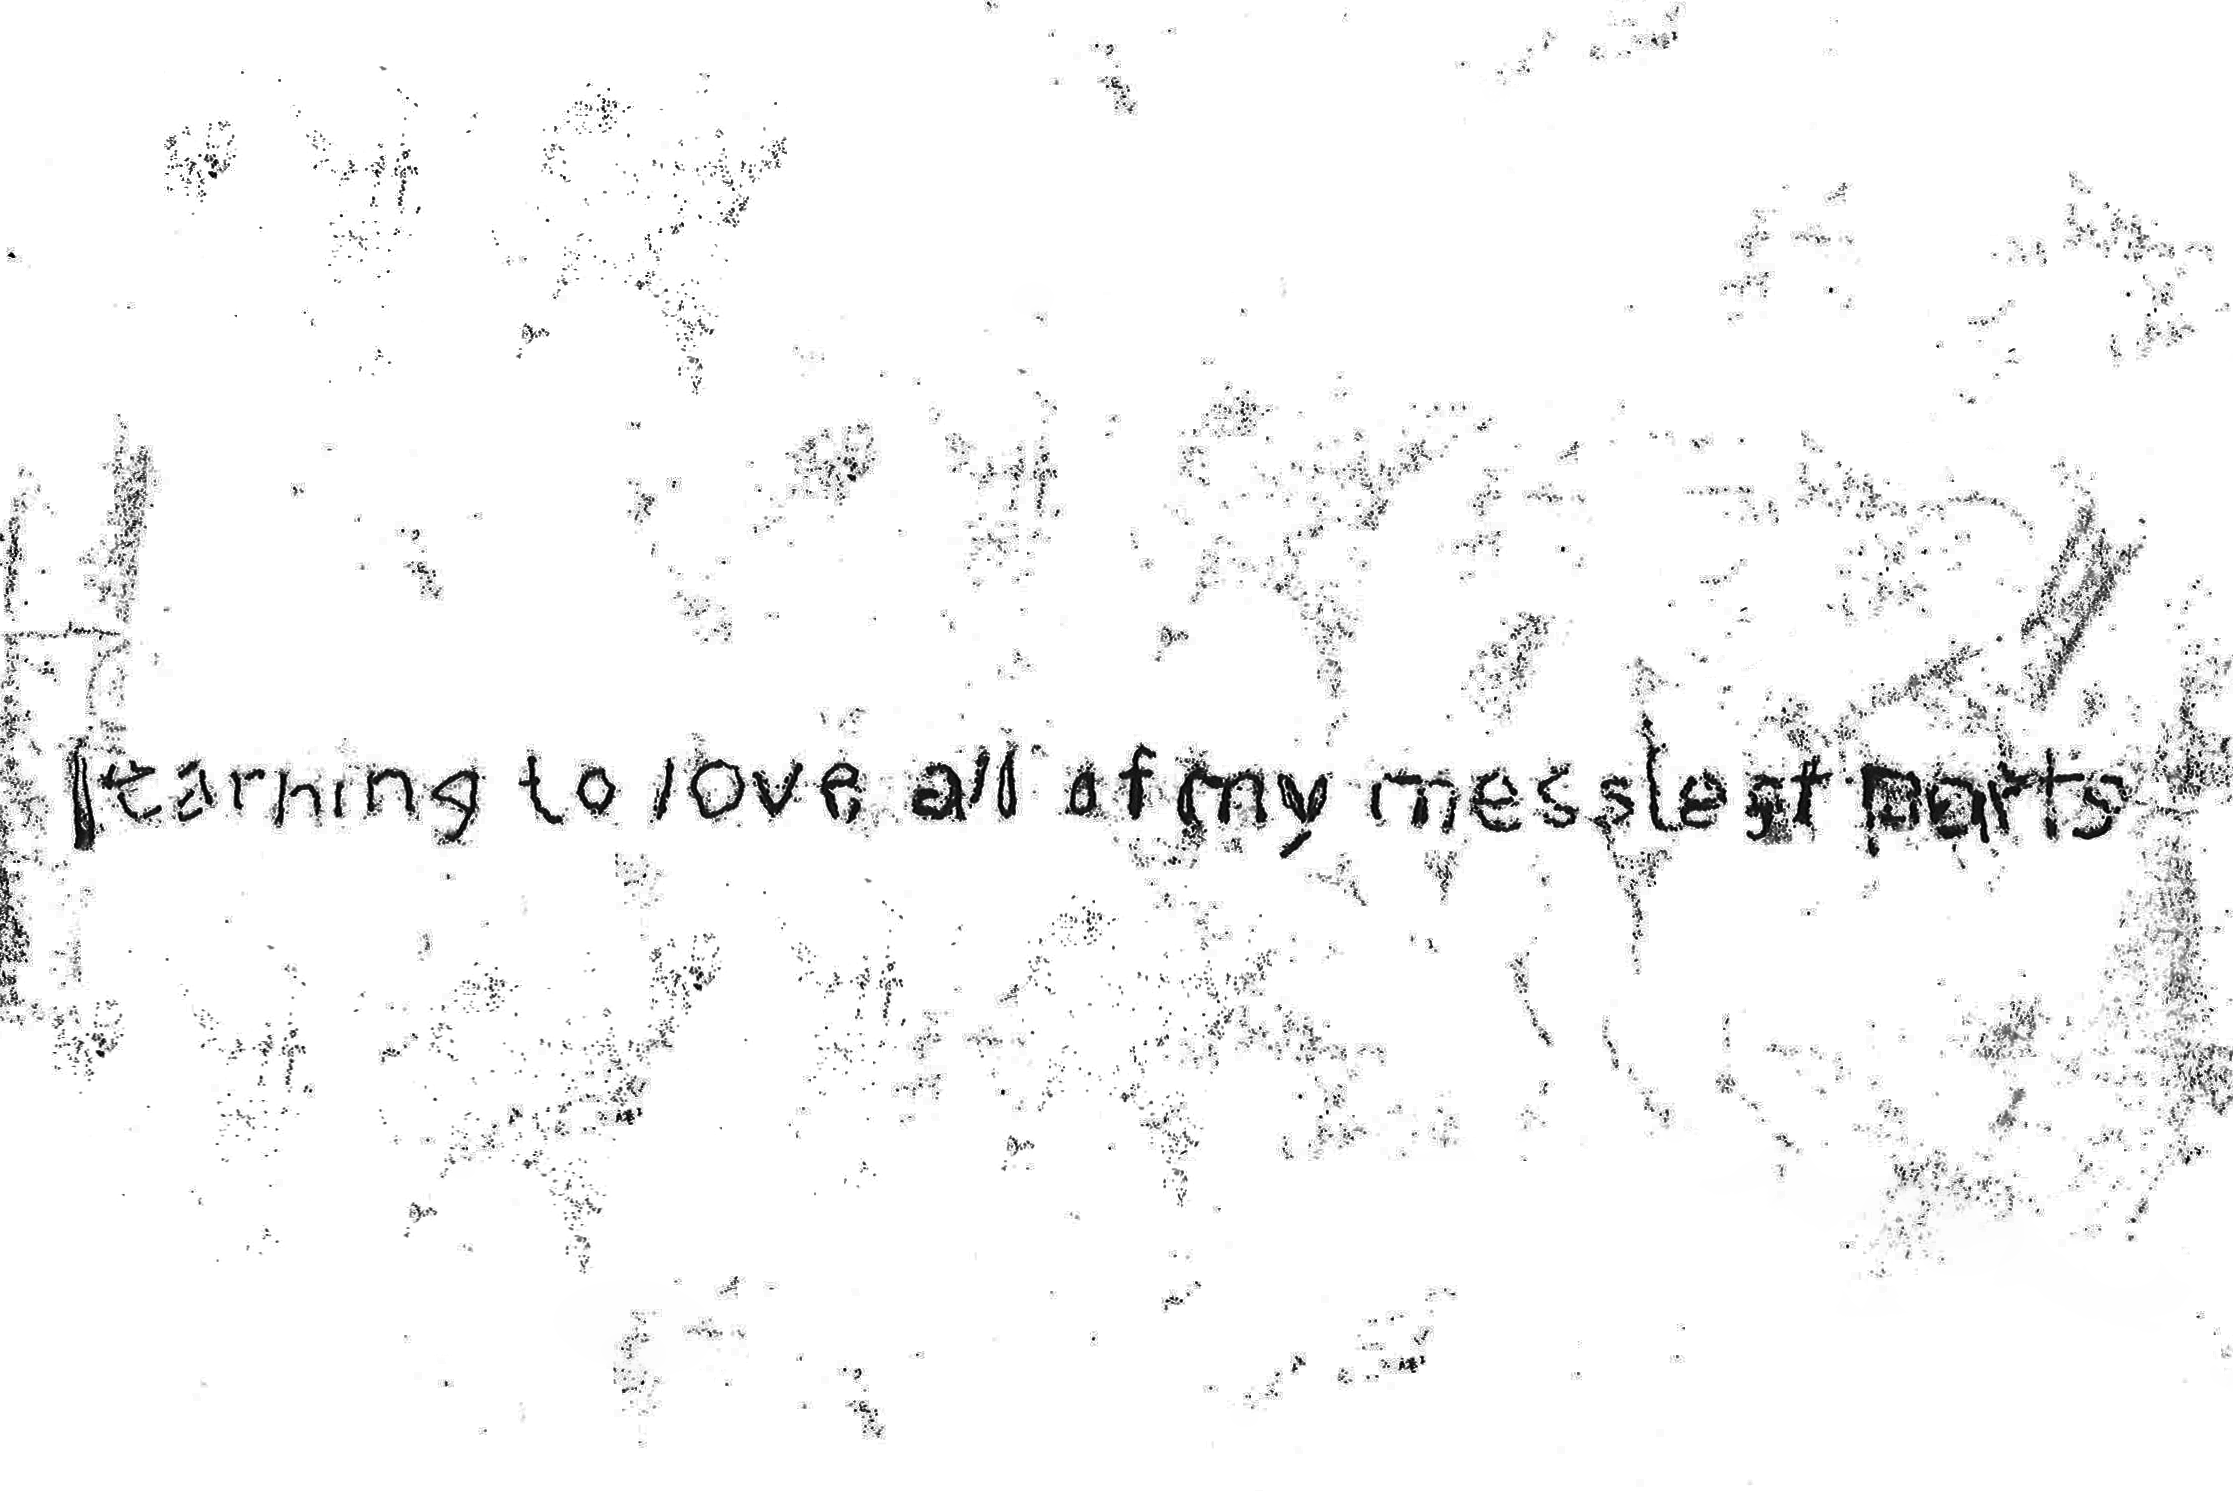 learning to love all of my messiest parts